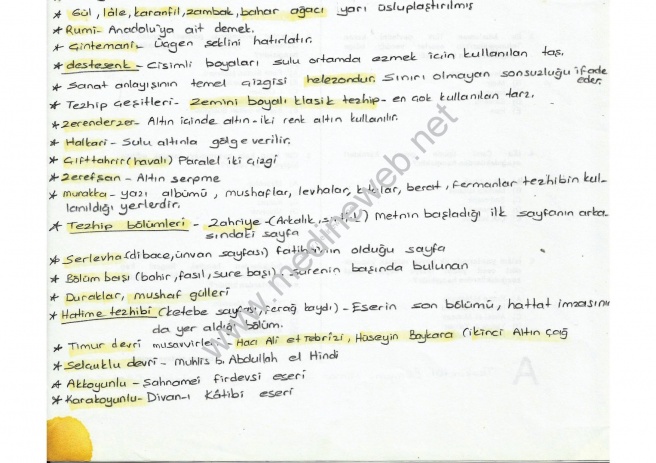 * Gül, lâle, karanfil, zambak, bahar ağacı yarı üsluplaştırılmış
* Rumi- Anadolu'ya ait demek.
* Çintemani- Üçgen şeklini hatırlatır.
* destesenk- Cisimli boyaları sulu ortamda ezmek için kullanılan taş.
* Sanat anlayışının temel çizgisi helezondur. Sınırı olmayan sonsuzluğu ifade eder.
* Tezhip Çeşitleri- Zemini boyalı klasik tezhip- en çok kullanılan tarz.
* zerenderzer- Altın içinde altın- iki renk altın kullanılır.
* Halkari- Sulu altınla gölge verilir.
* Çifttahrir(havalı) Paralel iki çizgi
* zerefşan- Altın serpme
* murakka- yazı albümü, mushaflar, levhalar, kıtalar, berat, fermanlar tezhibin kul-
lanıldığı yerlerdir.
* Tezhip bölümleri- Zahriye-(Arkalık, ) metnin başladığı ilk sayfanın arka-
sındaki sayfa
* Serlevha(dibace, ünvan sayfası) fatiha'nın olduğu sayfa
* Bölüm başı (bahir, fasıl, sure başı). Surenin başında bulunan
* Duraklar, mushaf gülleri
* Hatime tezhibi (ketebe sayfası, ferağ kaydı)- Eserin son bölümü, hattat imzasını
da yer aldığı bölüm.
* Timur devri musavvirleri Hacı Ali et Tebrizi, Hüseyin Baykara (ikinci Altın çağ
* Selçuklu devri- muhlis b. Abdullah el Hindi
* Akkoyunlu- Şahnamei firdevsi eseri
* Karakoyunlu- Divan-ı Kâtibi eseri
www.medineweb.net